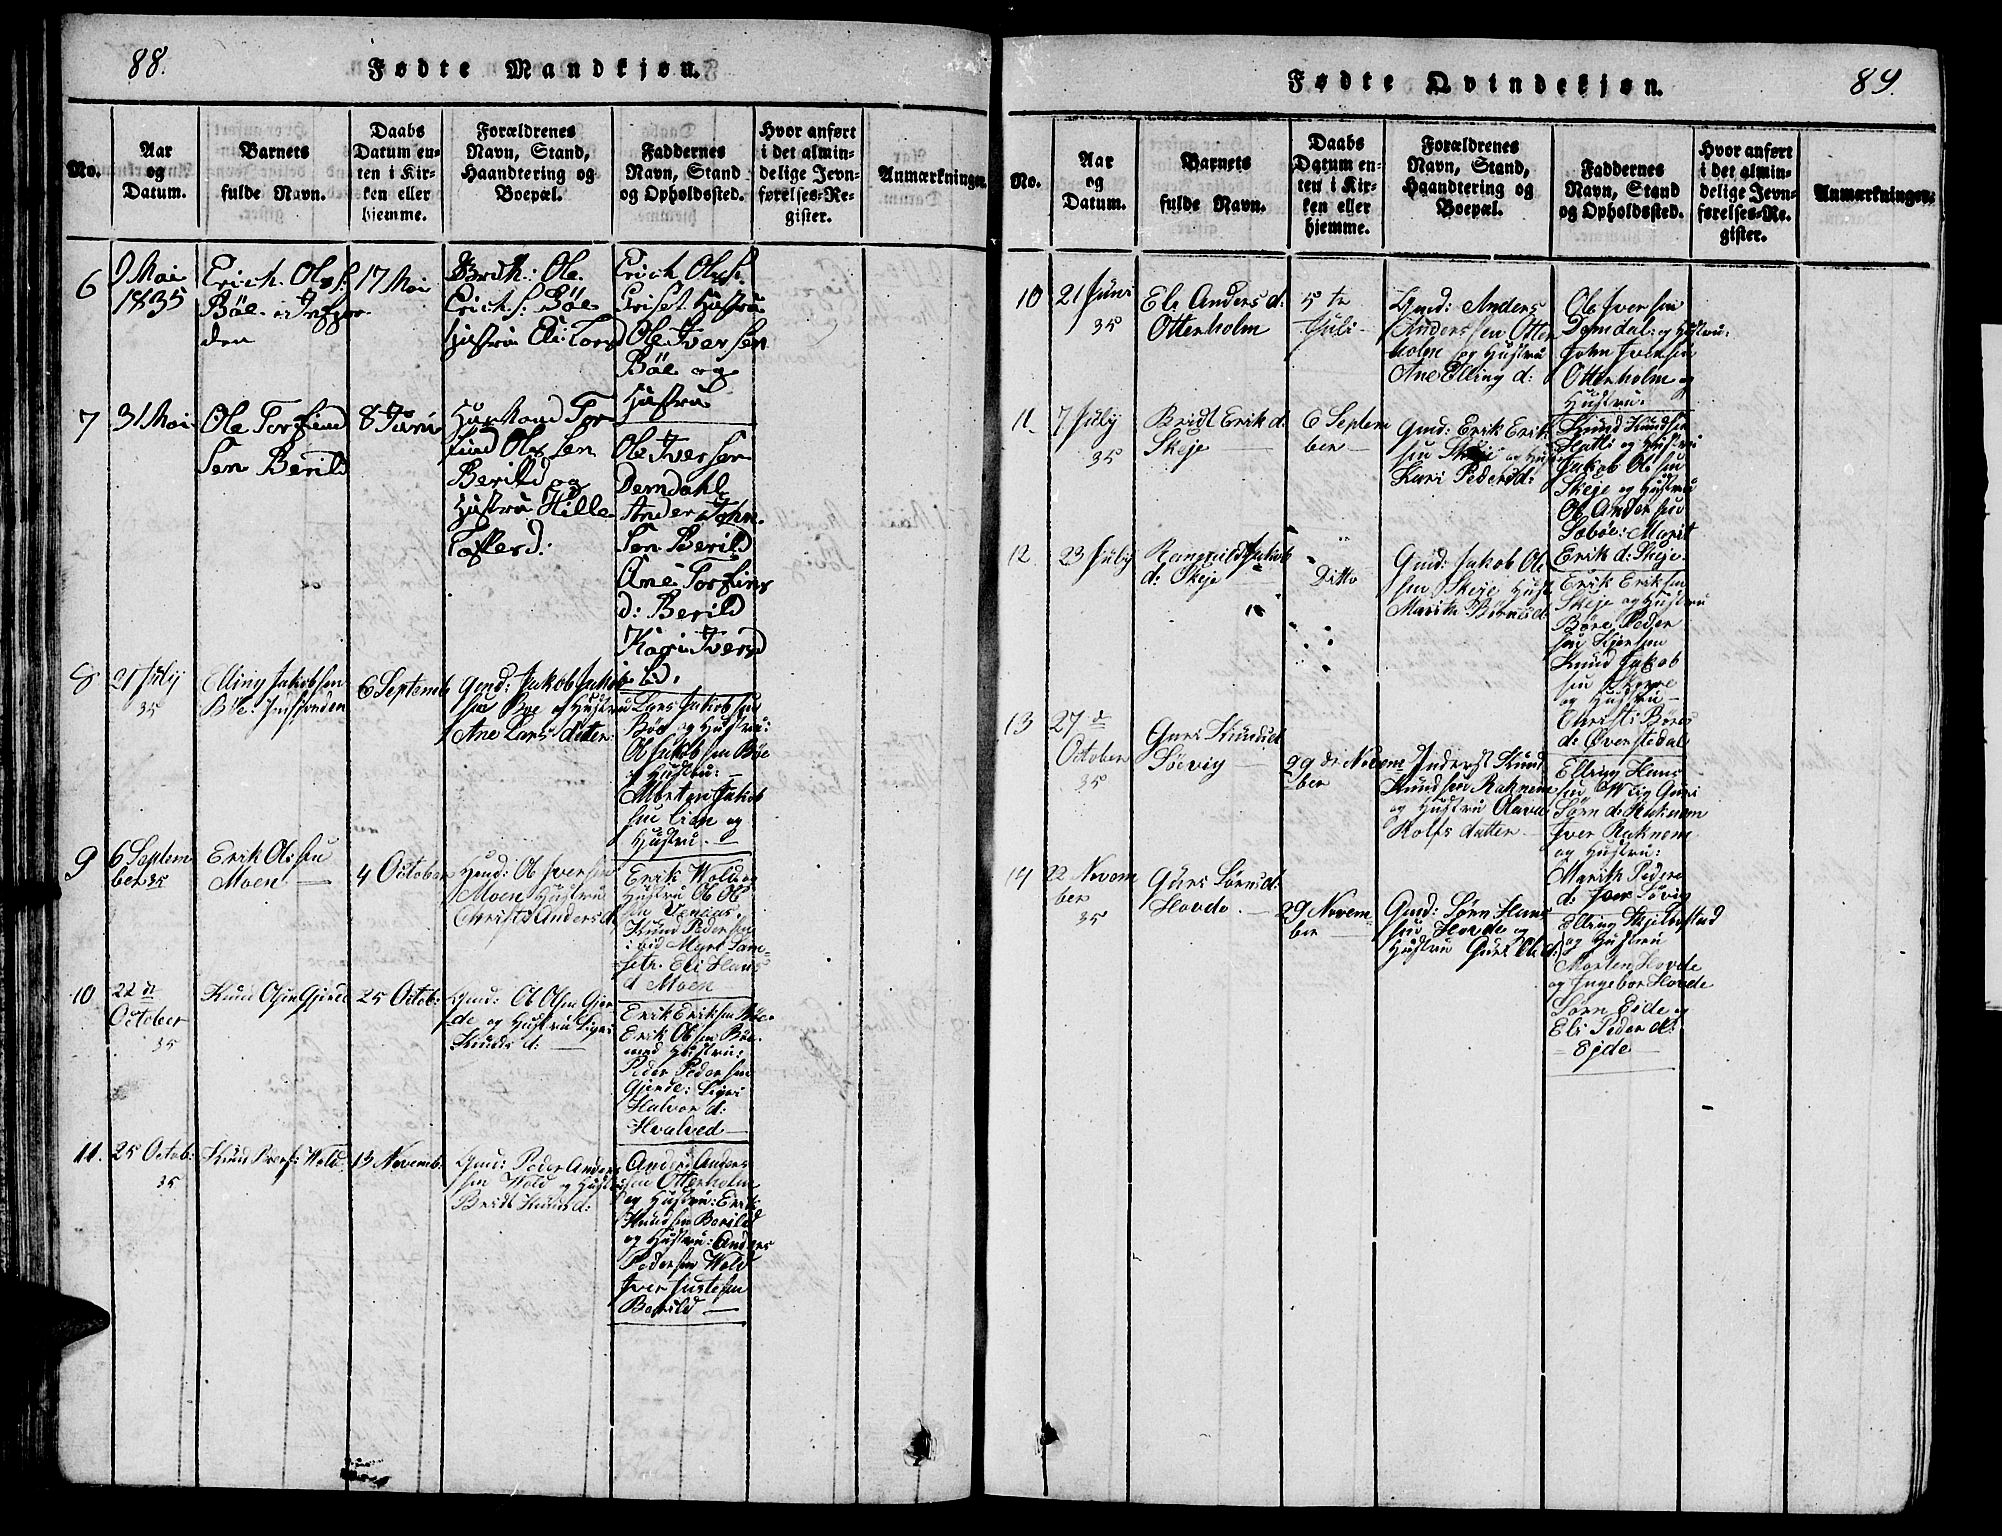 88.
Fødte Mandkjøn.
No.
Aar
og
Datum.
Barnets
fulde Navn.
Daabs
Datum en-
ten i Kir-
ken eller
hjemme.
Forældrenes
Navn, Stand,
Haandtering og
Boepæl.
Faddernes
Navn, Stand
og Opholdssted.
Hvor anført
i det almin-
delige Jevn-
førelses-Re-
gister.
Anmærkninger.
6
9 Mai
1835
Erich. Ols s:
Böe
den
17 Mai
Ole
Erich s: Böe
Hustru Eli
Erich Ols s:
Hustru
Ole Iversen
Böe og
Hustru
7
31 Mai
Ole Torfind
Sen Berild
8 Juni
Huusmand Tor
find Ols Sen
Berild og
Hustru Hille
Ole Iversen
Demdahl
Anders John
Sen Berild
Ane Torfins
d: Berild
Kari Ivers d
ibd.
8
21 July
35
Elling Jakobsen
Böe
6 Septemb
Gmd: Jakob Jakob
sen Böe og Hustru
Ane Lars datter:
Lars Jakobsen
Böe og Hustru:
Ol Jakobsen Böe
og Hustru:
Morten Jakob
sen Lien og
Hustru.
9
6 Septem
ber 35
Erik Olssen
Moen
4 October
Huud: Ol Iversen
Moen Hustru
Christi Anders d.
Erik Wold og
Hustru Ol Ol
Knud Pedersen
ibid
Eli Hans
d Moen
10
22 de
October
35
Knud Olsen Gjerde
25 Octob:
Gmd: Ol Olsen Gjer
de og Hustru Sigri
Knuds d:
Erik Eriksen Böe.
Erik Olsen Böe
med Hustru:
Peder Pedersen
Gjerde: Sigri
Halvor d:
Hvalved
11.
25 Octob:
35
Knud Peders: Wold.
13 Novemb.
Gmd: Peder Anders
sen Wold og Hustru
Bridt Knuds d:
Anders Anders
sen Otterholm
og Hustru: Erik
Knudsen Berild
og Hustru: Anders
Pedersen Wold
Iver
Berild
Fødte Qvindekjøn.
89.
No.
Aar
og
Datum.
Barnets
fulde Navn.
Daabs
Datum en-
ten i Kir-
ken eller
hjemme.
Forældrenes
Navn, Stand,
Haandtering og
Boepæl.
Faddernes
Navn, Stand
og Opholdssted.
Hvor anført
i det almin-
delige Jevn-
førelses-Re-
gister.
Anmærkninger.
10
21 Juni
35
Eli Anders d:
Otterholm
5 te
Juli
Gmd: Anders
Anderssen Otter
holm og Hustru
Ane Elling d:
Ole Iversen
Demdal: og Hustru:
John Iversen
Otterholm og
Hustru:
11.
7 July
35
Bridt Erik d:
Skeje
6 Septem
ber
Gmd: Erik Erik
sen Skeje og Hustru
Kari Peders d:
Knud Knudsen
og Hustru
Jakob Olsen
Skeje og Hustru
Ol Andersen
Söböe: Marit
Erik d: Skeje
12
23 July
Rangnild Jakob
d: Skeje
Ditto
Gmd: Jakob Ol
sen Skeje Hust
Marith Börnes d:
Erik Eriksen
Skeje og Hustru
Böre Peder
sen
Knud Jakob
sen
og Hustru
Christi Böres
d: Øverstedal
13
27 de
October
35
Guri Knuds d
Söevig
29 de Novem
ber
Inderst Knud
Knudsen Raknem
og Hustru Olava
Rolfs datter
Elling Hans
sen Wiig Guri
Sörn d: Raknem
Iver Raknem
og Hustru:
Marith Peders
d: Söevig
14
22 Novem
ber
35
Guri Sörns d:
Hovde.
29 Novem
ber
Gmd: Sörn Hans
sen Hovde og
Hustru Guri Ol d:
Elling Skjelbostad
og Hustru
Morten Hovde
og Ingebor Hovde
Sörn Eide og
Eli Peder d:
Ejde